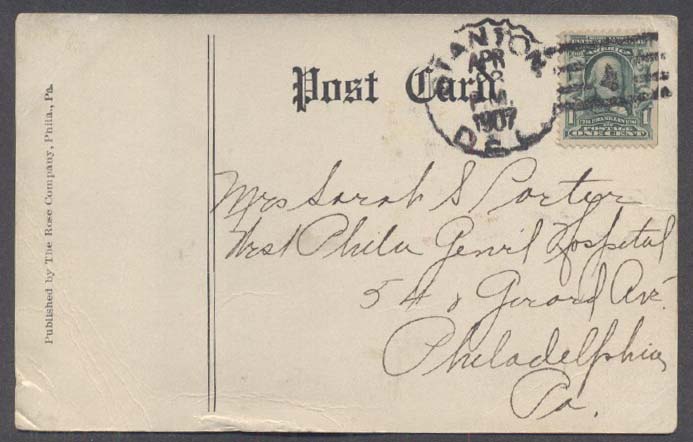 Published by The Rose Company, Phila., Pa.
Post Card
STANTON
APR
2
P.M.
1907
DEL
FRANKLIN
1 1
POSTAGE
ONE CENT
Mrs Sarah S Porter
West Phila Genril Hospital
54 & Gerard Ave.
Philadelphia
Pa.